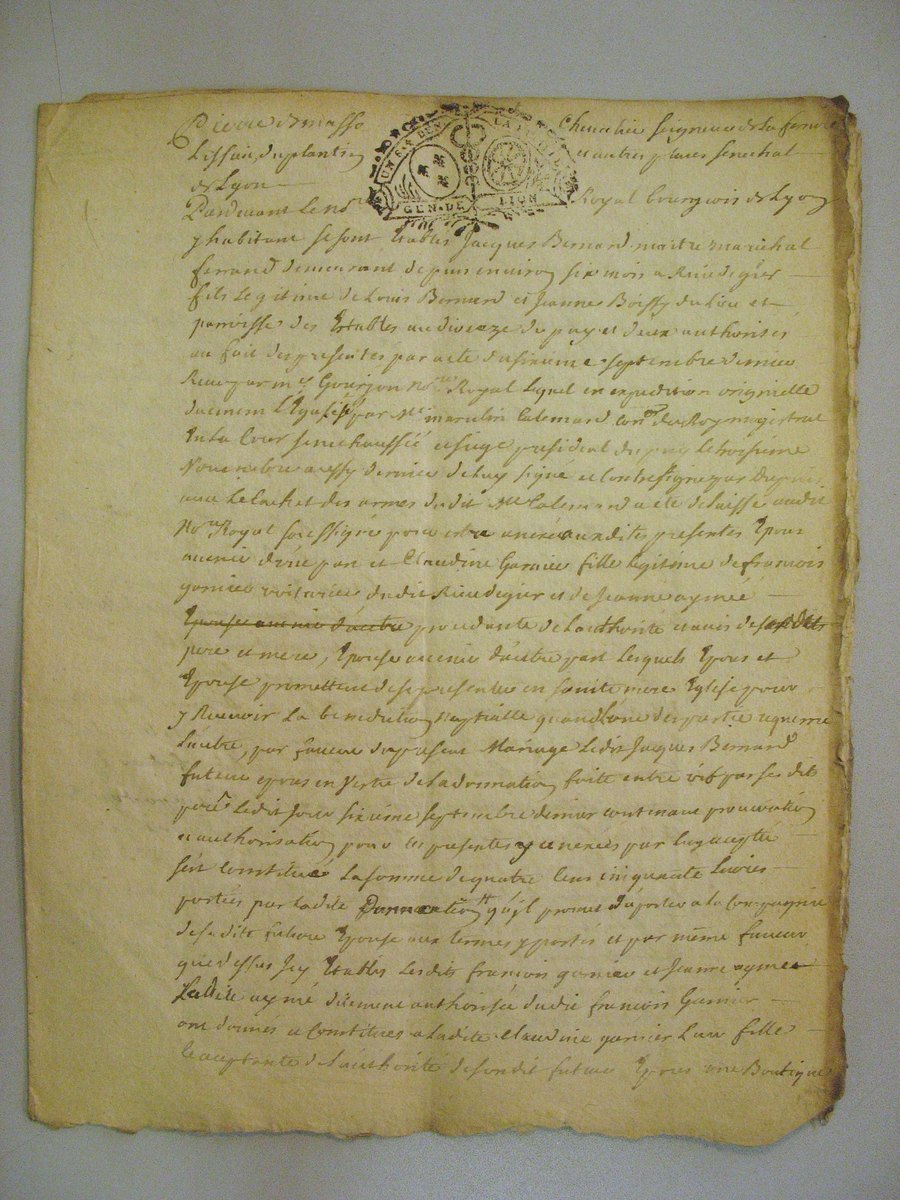 Pierre de masso Chevalier seigneur de La ferriere
Lissieu, du plantin et autres places senechal
de Lyon
UN S. 4 DEN LA FEUILLE
GEN. DE LION
Pardevant le no.re Royal bourgeois de Lyon
y habitant se sont Etablis Jacques Bernard maitre marechal
ferrand demeurant depuis environ six mois a Rivedegier
fils Legitime de Louis Bernard et Jeanne Boissy du Lieu et
parroisse des Estables au dioceze du puy et d'eux authorisés
au fait des presentes par acte du sixieme septembre dernier
Receu par me Gourjon no.re Royal Lequel en expedition originelle
duement Legalisé par Me marcelin Calemard con.er du Roy magistrat
En La Cour senechaussée et siege presidial du puy Le troisieme
Novembre aussy dernier de luy signé et contresigné par
avec Le Cachet des armes dudit Me Calemard a eté delaissé audit
No.re Royal soussigné pour estre annexé auxdites presentes Epoux
avenir d'une part et Claudine Garnier fille legitime de francois
garnier voiturier dudit Rivedegier et de Jeanne aymé
Epouse avenir d'autre procedante de L'authorité et avis de sesdits
pere et mere, Epouse avenir d'autre part Lesquels Epoux et
Epouse promettent de se presenter en sainte mere Eglise pour
y Recevoir La benediction Nuptialle quand L'une des partie requerra
L'autre, par faveur du present Mariage Ledit Jacques Bernard
futeur epoux en Vertu de La donnation faite entre vifs par ses dits
pere Ledit Jour sixieme septembre dernier contenant procuration
et authorisation pour les presentes y annexée par luy accepté
s'est Constitué La somme de quatre Cens cinquante Livres
portées par Ladite Donnation qu'il promet d'aporter a la Compagnie
de sadite future Epouse aux termes y portés et par même faveur
que dessus Icy Etablis Lesdits francois garnier et Jeanne aymé
Ladite aymé duement authorisée dudit francois Garnier
ont donnés et Constitués a Ladite Claudine garnier Leur fille
acceptante de L'authorité de son dit futeur Epoux une Boutique